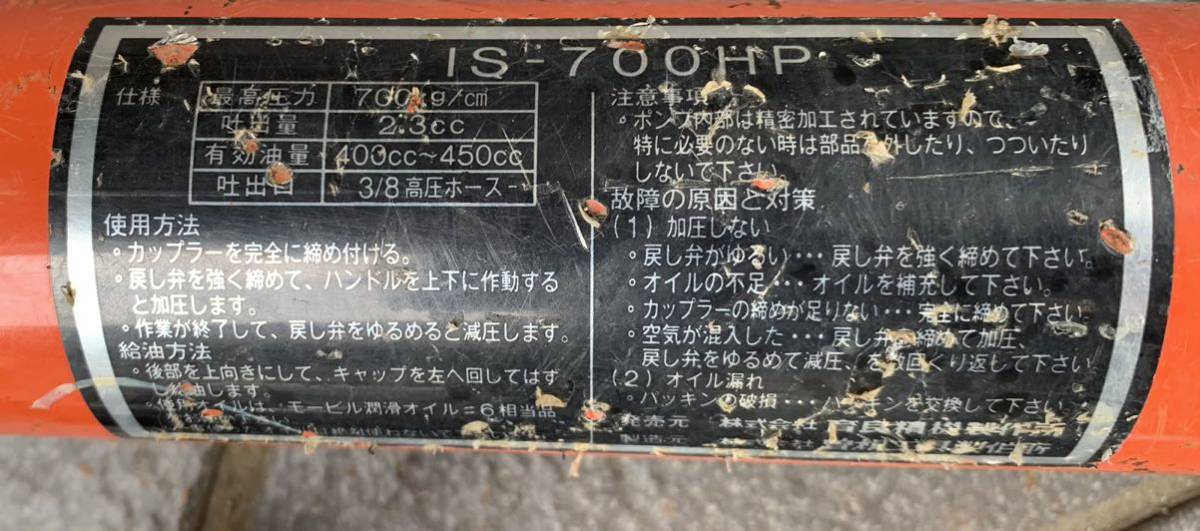 IS-700HP
仕様
最高圧力 700kg/c㎡
吐出量 2.3cc
有効油量 400cc~450cc
吐出口 3/8高圧ホース
使用方法
。カップラーを完全に締め付ける。
。戻し弁を強く締めて、ハンドルを上下に作動する
と加圧します。
。作業が終了して、戻し弁をゆるめると減圧します。
給油方法
。後部を上向きにして、キャップを左へ回してはず
し給油します。
モービル潤滑オイル=6相当品
注意事項
。ポンプ内部は精密加工されていますので、
特に必要のない時は部品を外したり、つついたり
しないで下さい
故障の原因と対策
(1)加圧しない
。戻し弁がゆるい···戻し弁を強く締めて下さい。
。オイルの不足···オイルを補充して下さい。
。カップラーの締めが足りない···完全に締めて下さい
。空気が混入した···戻し弁を締めて加圧、
戻し弁をゆるめて減圧、を数回くり返して下さい
(2)オイル漏れ
。パッキンの破損···パッキンを交換して下さい
発売元 株式会社
製造元